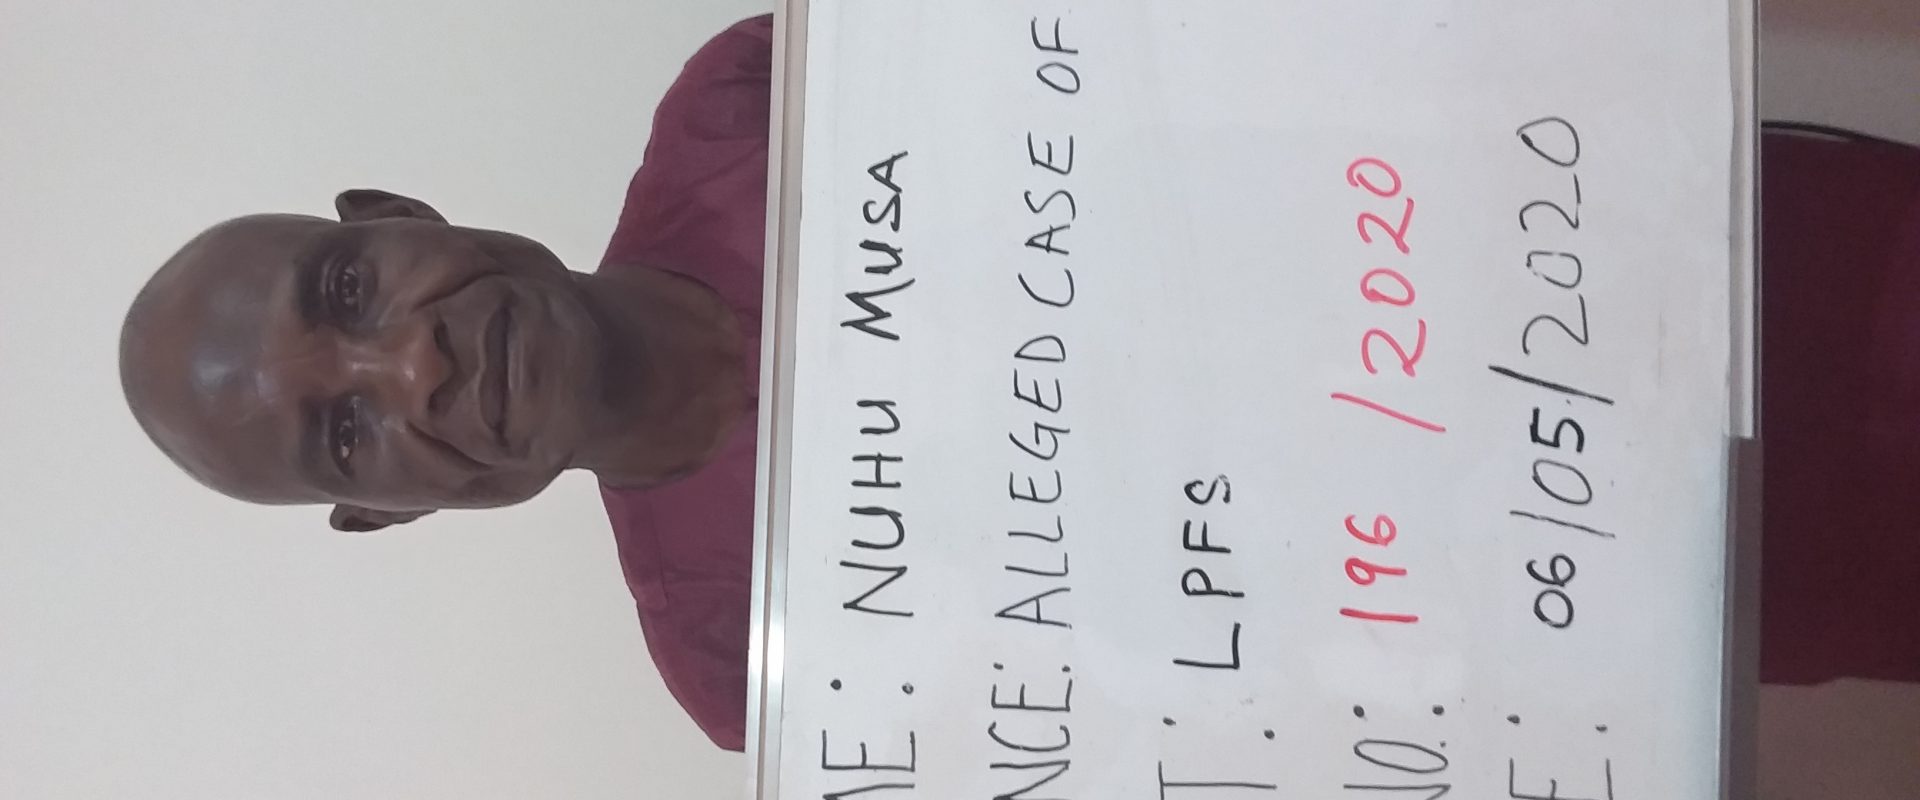 ME: NUHU MUSA
NCE: ALLEGED CASE OF
T: LPFS
NO.: 196 /2020
E: 06/05/2020